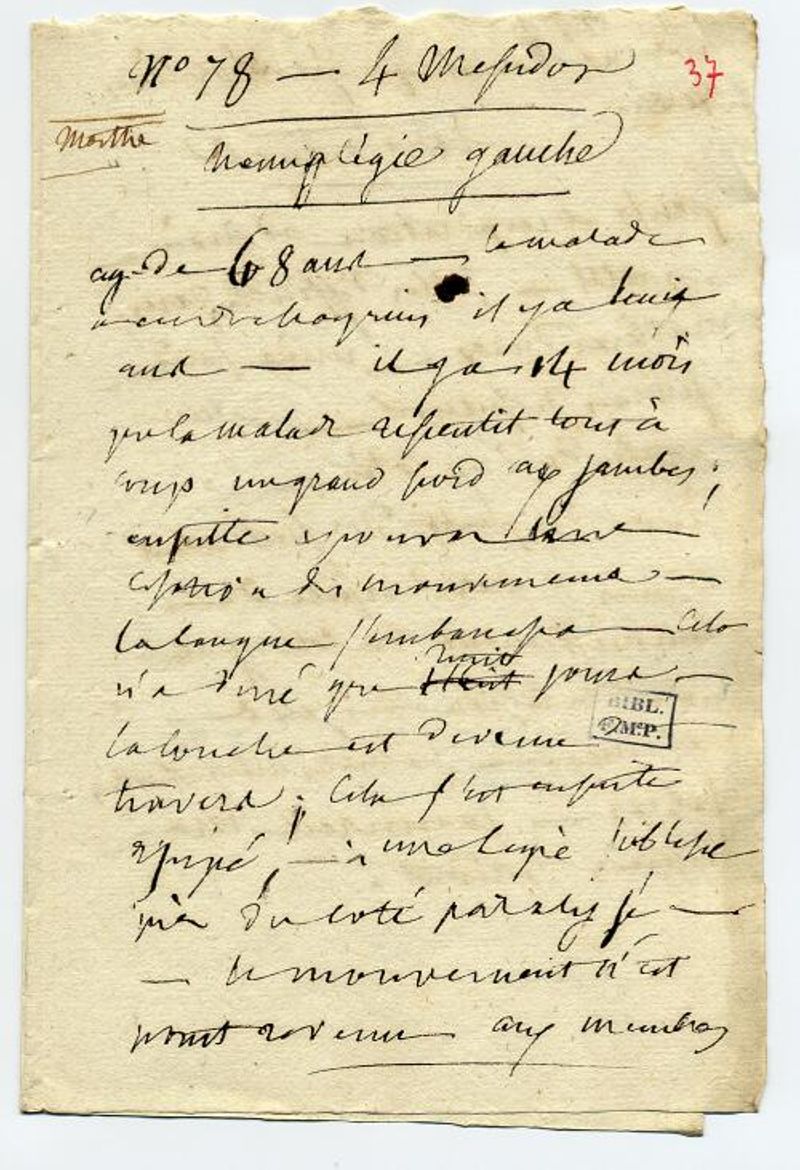 No 78 — 4 Messidor
37
Marthe
hemiplégie gauche
agé de 68 ans — le malade
a eu des chagrins il y a huit
ans — il y a 14 mois
que la malade ressentit tout à
coup un grand froid aux jambes;
ensuite
des mouvemens —
la langue s'embarassa — cela
n'a duré que huit jours —
BIBL.
Mᵉ P.
la bouche est devenue
travers; cela s'est ensuite
dissipé; —
du coté paralysé —
— le mouvement n'est
point revenu aux membres